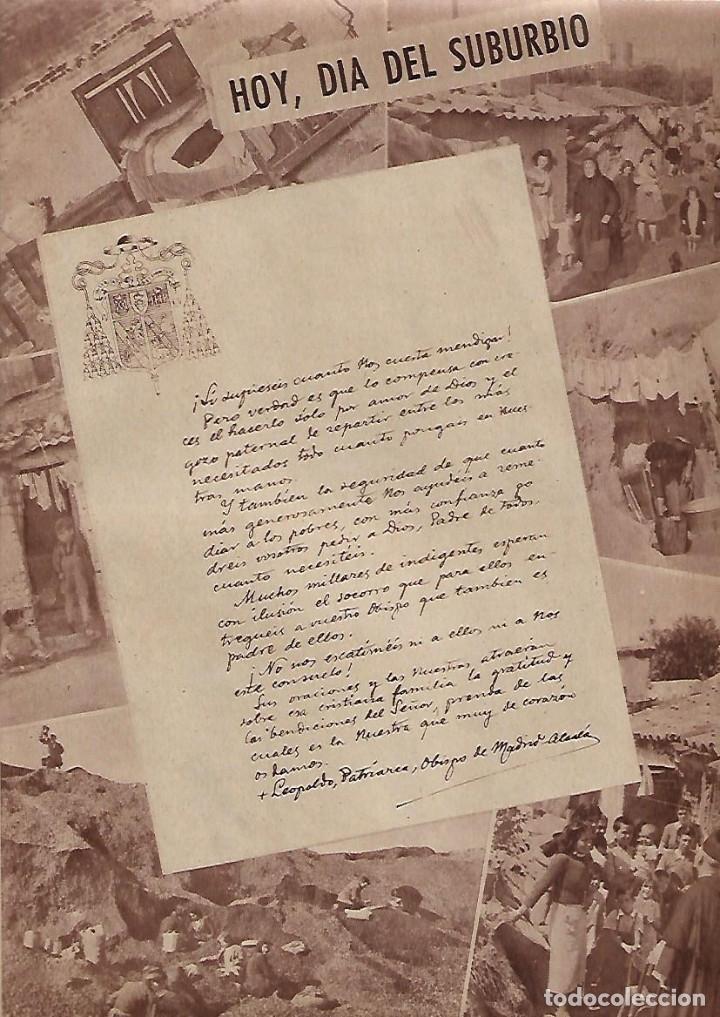 HOY, DIA DEL SUBURBIO
¡Si supieseis cuanto Nos cuesta mendigar!
Pero verdad es que lo compensa con cre-
ces el hacerlo sólo por amor de Dios y el
gozo paternal de repartir entre los más
necesitados todo cuanto pongais en Nues-
tras manos.
Y tambien la seguridad de que cuanto
más generosamente Nos ayudéis a reme-
diar a los pobres, con más confianza po
dreis vosotros pedir a Dios, Padre de todos,
cuanto necesitéis.
Muchos millares de indigentes esperan
con ilusión el socorro que para ellos en-
tregueis a vuestro Obispo que tambien es
padre de ellos.
¡No nos escatiméis ni a ellos ni a Nos
este consuelo!
Sus oraciones y las Nuestras, atraerán
sobre esa cristiana familia la gratitud y
las bendiciones del Señor, prenda de las
cuales es la Nuestra que muy de corazón
os damos.
+ Leopoldo, Patriarca, Obispo de Madrid-Alcalá
todocoleccion